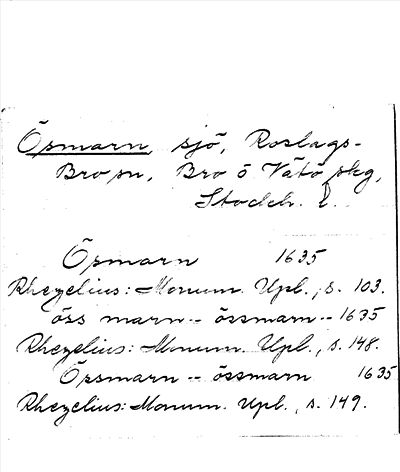 Õpmarn, sjö, Roslags-
Bro sn, Bro o Vätö skg,
Stockh. l.
Õpmarn 1635
Rhezelius: Monum. Upl., s. 103.
öss marn -- össmarn -- 1635
Rhezelius: Monum. Upl., s. 148.
Õpsmarn -- össmarn 1635
Rhezelius: Monum. Upl., s. 149.